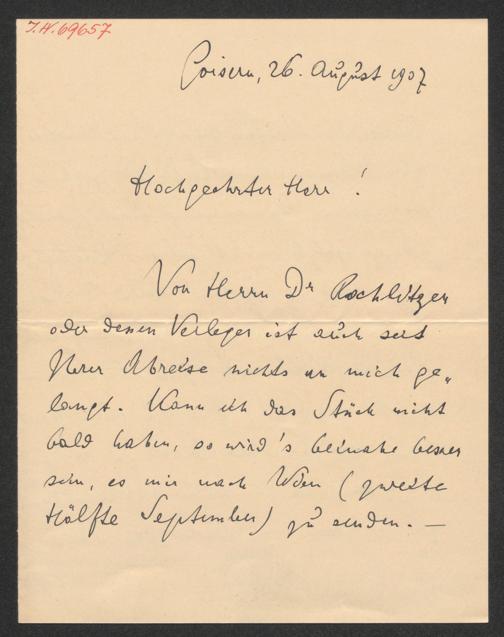 J.N. 69657
Goisern, 26. August 1907
Hochgeehrter Herr !
Von Herrn Dr Rochlitzer
oder dessen Verleger ist auch seit
Ihrer Abreise nichts an mich ge„
langt. Kann ich das Stück nicht
bald haben, so wird's beinahe besser
sein, es mir nach Wien (zweite
Hälfte September) zu senden. —